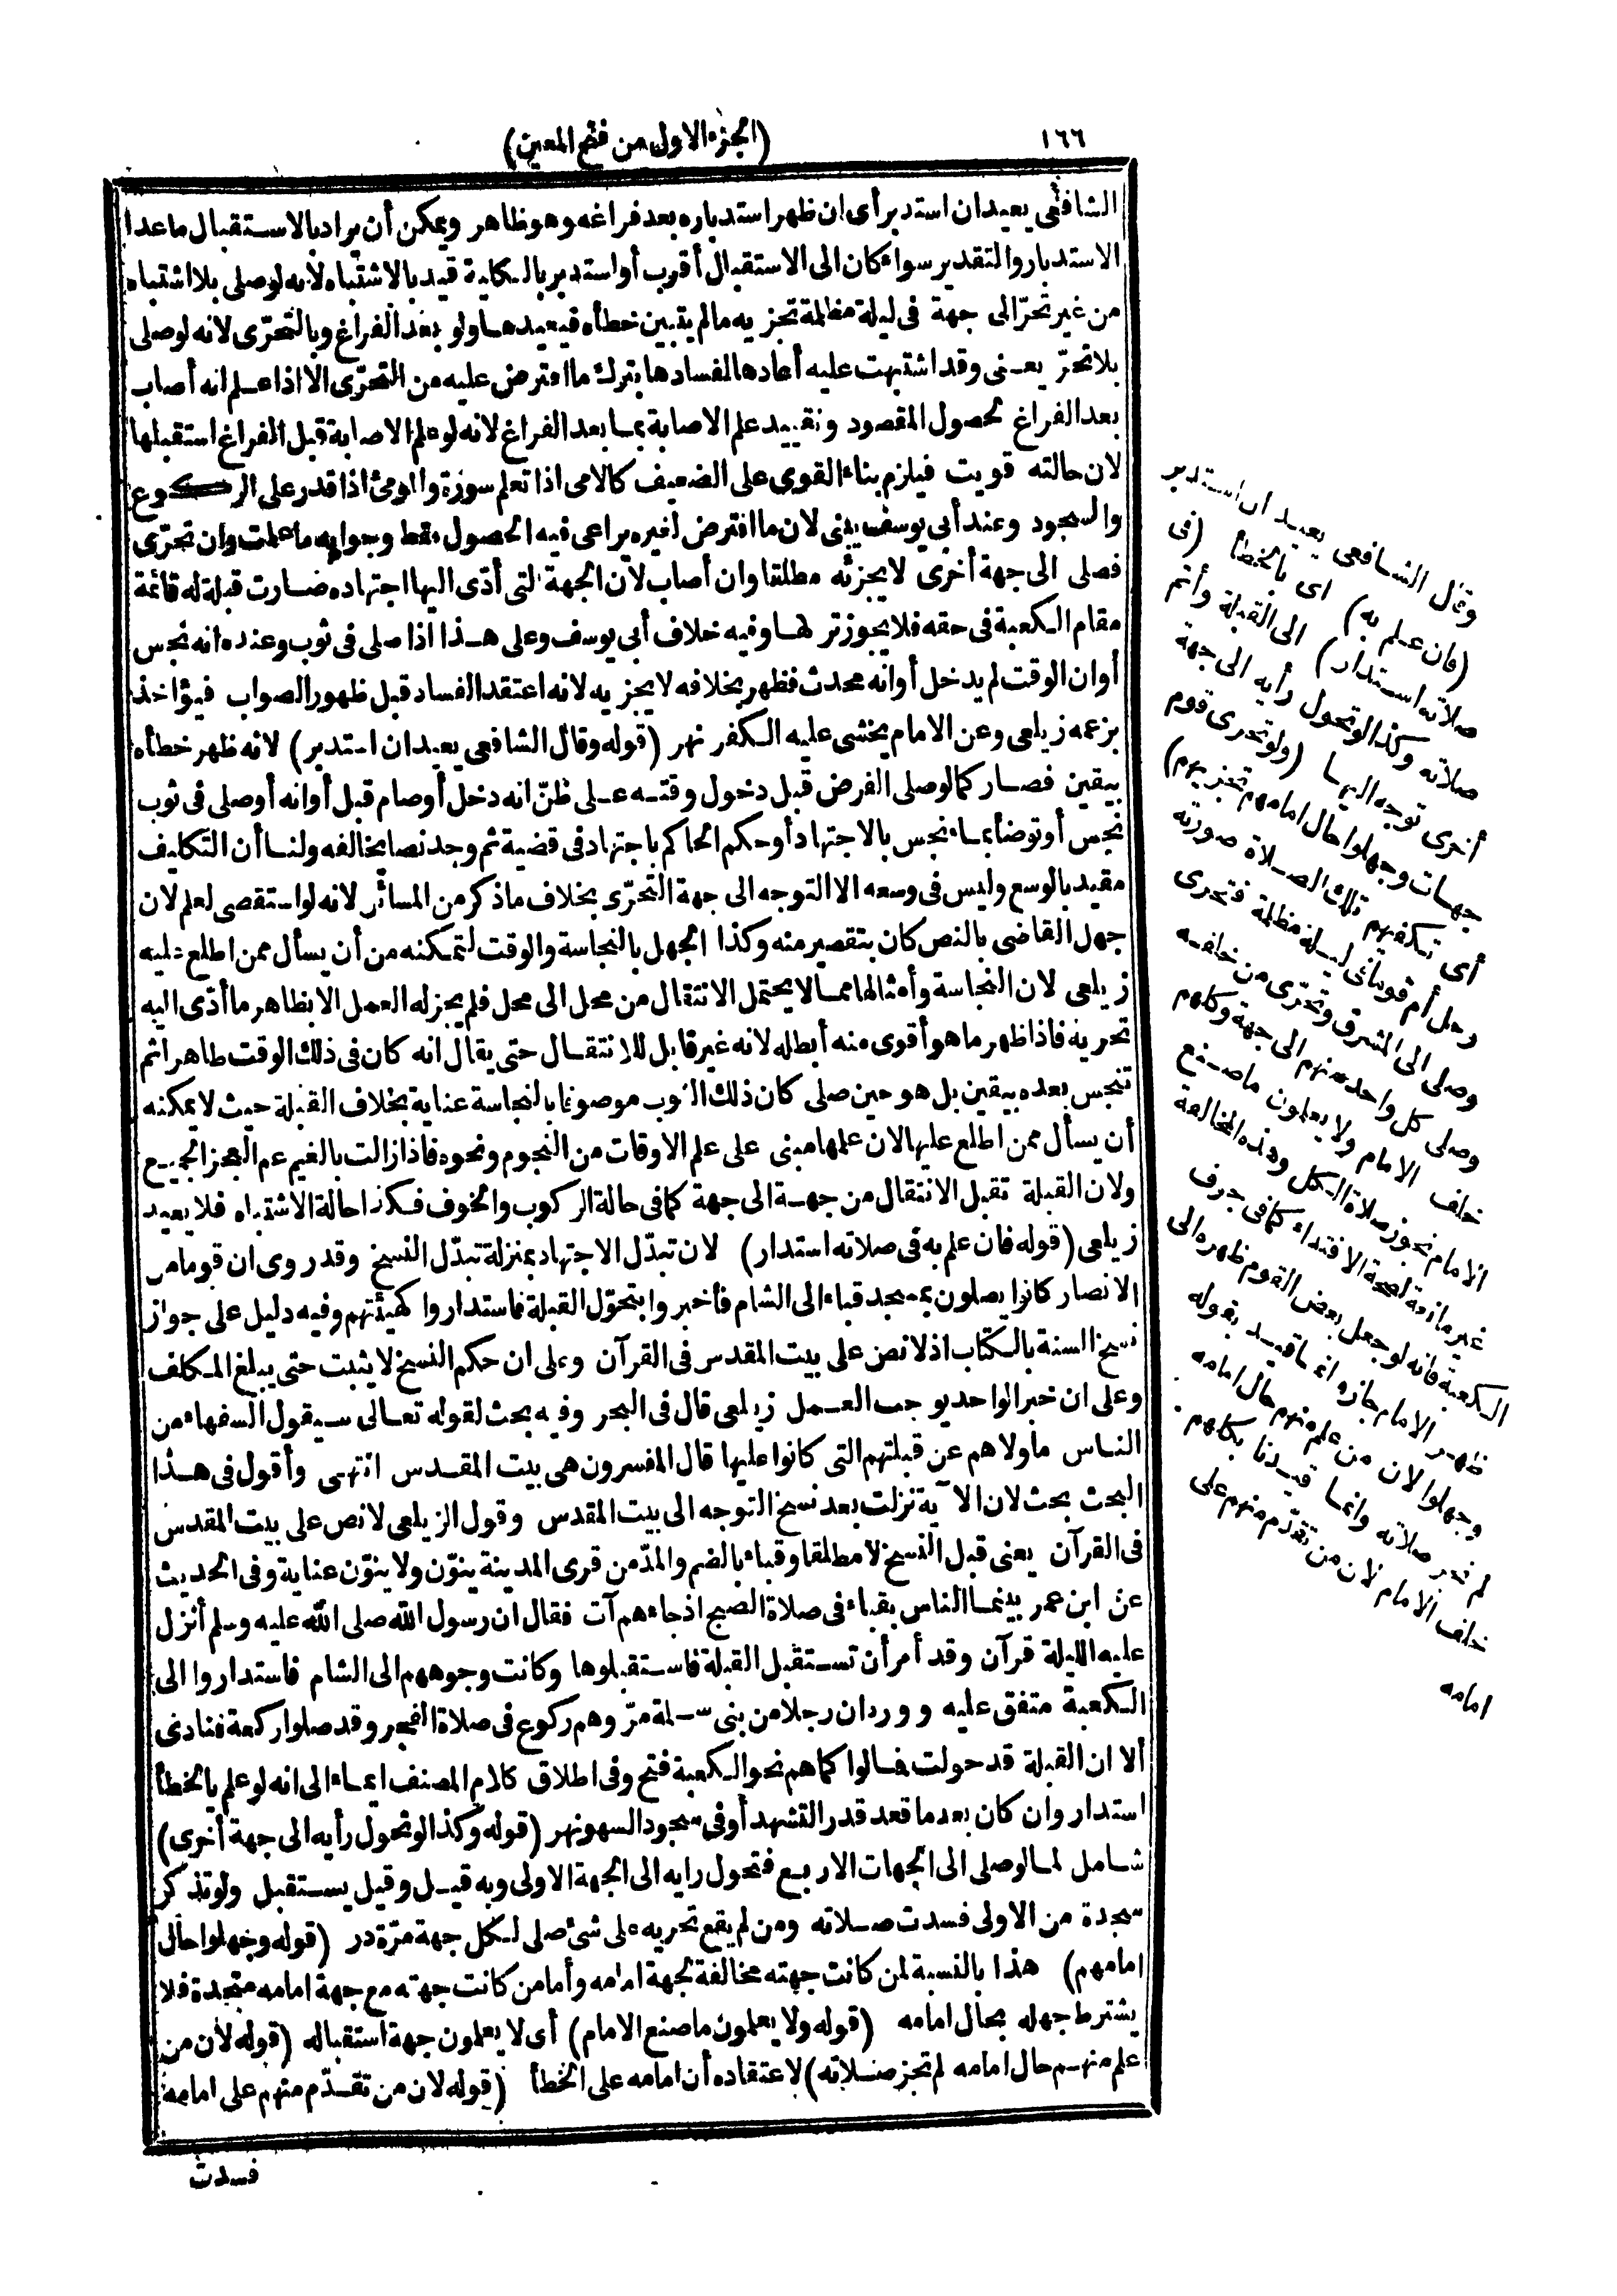 ١٦٦
(الجزء الاول من فتح المعين)
الشافعى يعيد ان استدبر أى ان ظهر استدباره بعد فراغه وهو ظاهر ويمكن أن يراد بالاستقبال ماعدا
الاستدبار والتقدير سواء كان الى الاستقبال أقرب أو استدبر بالكلية قيد بالاشتباه لانه لو صلى بلا اشتباه
من غير تحرّ الى جهة فى ليلة مظلمة تجزيه مالم يتبين خطأه فيعيدها ولو بعد الفراغ وبالتحرّى لانه لو صلى
بلا تحرّ يعنى وقد اشتبهت عليه أعادها لفسادها بترك ما افترض عليه من التحرّى الا اذا علم انه أصاب
بعد الفراغ لحصول المقصود وتقييد علم الاصابة بما بعد الفراغ لانه لو علم الاصابة قبل الفراغ استقبلها
لان حالته قويت فيلزم بناء القوى على الضعيف كالامى اذا تعلم سورة والمومئ اذا قدر على الركوع
والسجود وعند أبي يوسف يبنى لان ما افترض لغيره يراعى فيه الحصول فقط وجوابه ما علمت وان تحرّى
فصلى الى جهة أخرى لا يجزئه مطلقا وان أصاب لان الجهة التى أدّى اليها اجتهاده صارت قبلة له قائمة
مقام الكعبة فى حقه فلا يجوز تركها وفيه خلاف أبي يوسف وعلى هذا اذا صلى فى ثوب وعنده انه نجس
أو ان الوقت لم يدخل أو انه محدث فظهر بخلافه لا يجزيه لانه اعتقد الفساد قبل ظهور الصواب فيؤاخذ
بزعمه زيلعى وعن الامام يخشى عليه الكفر نهر (قوله وقال الشافعى يعيد ان استدبر) لانه ظهر خطأه
بيقين فصار كما لو صلى الفرض قبل دخول وقته على ظنّ انه دخل أو صام قبل أوانه أو صلى فى ثوب
نجس أو توضأ بماء نجس بالاجتهاد أو حكم الحاكم باجتهاد فى قضية ثم وجد نصا يخالفه ولنا أن التكليف
مقيد بالوسع وليس فى وسعه الا التوجه الى جهة التحرّى بخلاف ما ذكر من المسائل لانه لو استقصى لعلم لان
جهل القاضى بالنص كان بتقصير منه وكذا الجهل بالنجاسة والوقت لتمكنه من أن يسأل ممن اطلع عليه
زيلعى لان النجاسة وأمثالها مما لا يحتمل الانتقال من محل الى محل فلم يجز له العمل الا بظاهر ما أدّى اليه
تحريه فاذا ظهر ما هو أقوى منه أبطله لانه غير قابل للانتقال حتى يقال انه كان فى ذلك الوقت طاهرا ثم
تنجس بعده بيقين بل هو حين صلى كان ذلك الثوب موصوفا بالنجاسة عناية بخلاف القبلة حيث لا يمكنه
أن يسأل ممن اطلع عليها لان علمها مبنى على علم الاوقات من النجوم ونحوه فاذا زالت بالغيم عم العجز الجميع
ولان القبلة تقبل الانتقال من جهة الى جهة كما فى حالة الركوب والخوف فكذا حالة الاشتباه فلا يعيد
زيلعى (قوله فان علم به فى صلاته استدار) لان تبدّل الاجتهاد بمنزلة تبدّل النسخ وقد روى ان قوما من
الانصار كانوا يصلون بمسجد قباء الى الشام فأخبروا بتحوّل القبلة فاستداروا كهيئتهم وفيه دليل على جواز
نسخ السنة بالكتاب اذ لا نص على بيت المقدس فى القرآن وعلى ان حكم النسخ لا يثبت حتى يبلغ المكلف
وعلى ان خبر الواحد يوجب العمل زيلعى قال فى البحر وفيه بحث لقوله تعالى سيقول السفهاء من
الناس ماولاهم عن قبلتهم التى كانوا عليها قال المفسرون هى بيت المقدس انتهى وأقول فى هذا
البحث بحث لان الآية نزلت بعد نسخ التوجه الى بيت المقدس وقول الزيلعى لا نص على بيت المقدس
فى القرآن يعنى قبل النسخ لا مطلقا وقباء بالضم والمدّ من قرى المدينة ينوّن ولا ينوّن عناية وفى الحديث
عن ابن عمر بينما الناس بقباء فى صلاة الصبح اذ جاءهم آت فقال ان رسول الله صلى الله عليه وسلم أنزل
عليه الليلة قرآن وقد أمر أن تستقبل القبلة فاستقبلوها وكانت وجوههم الى الشام فاستداروا الى
الكعبة متفق عليه وورد ان رجلا من بنى سلمة مرّ وهم ركوع فى صلاة الفجر وقد صلوا ركعة فنادى
ألا ان القبلة قد حولت فمالوا كما هم نحو الكعبة فتح وفى اطلاق كلام المصنف ايماء الى انه لو علم بالخطأ
استدار وان كان بعد ما قعد قدر التشهد أو فى سجود السهو نهر (قوله وكذا لو تحول رأيه الى جهة أخرى)
شامل لما لو صلى الى الجهات الاربع فتحول رايه الى الجهة الاولى وبه قيل وقيل يستقبل ولو تذكر
سجدة من الاولى فسدت صلاته ومن لم يقع تحريه على شئ صلى لكل جهة مرّة در (قوله وجهلوا حال
امامهم) هذا بالنسبة لمن كانت جهته مخالفة لجهة امامه وأما من كانت جهته مع جهة امامه متحدة فلا
يشترط جهله بحال امامه (قوله ولا يعلمون ما صنع الامام) أى لا يعلمون جهة استقباله (قوله لان من
علم منهم حال امامه لم تجز صلاته) لاعتقاده أن امامه على الخطأ (قوله لان من تقدّم منهم على امامه
فسدت
وقال الشافعى يعيد ان استدبر
(فان علم به) اى بالخطأ (فى
صلاته استدار) الى القبلة وأتم
صلاته وكذا لو تحول رأيه الى جهة
أخرى توجه اليها (ولو تحرى قوم
جهات وجهلوا حال امامهم تجزيهم)
أى تكفيهم تلك الصلاة صورته
رجل أم قوما فى ليلة مظلمة فتحرى
وصلى الى المشرق وتحرّى من خلفه
وصلى كل واحد منهم الى جهة وكلهم
خلف الامام ولا يعلمون ما صنع
الامام تجوز صلاة الكل وهذه المخالفة
غير مانعة لصحة الاقتداء كما فى جوف
الكعبة فانه لو جعل بعض القوم ظهره الى
ظهر الامام جاز وانما قيد بقوله
وجهلوا لان من علم منهم حال امامه
لم تجز صلاته وانما قيدنا بكلهم
خلف الامام لان من تقدّم منهم على
امامه